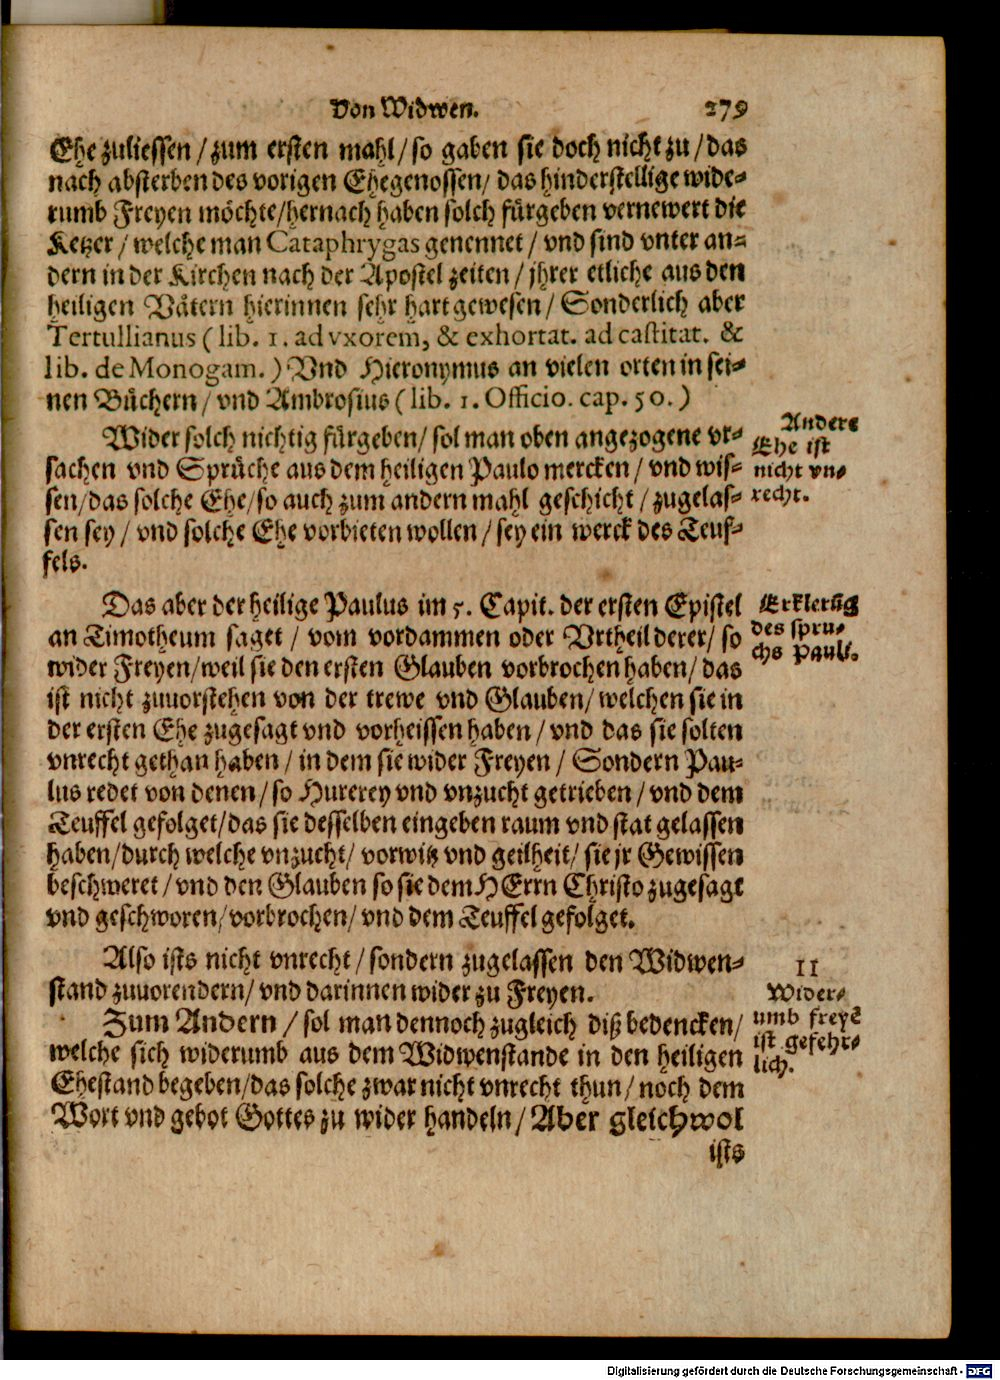 Von Widwen. 279
Ehe zuliessen / zum ersten mahl / so gaben sie doch nicht zu / das
nach absterben des vorigen Ehegenossen / das hinderstellige wide-
rumb Freyen möchte / hernach haben solch fürgeben vernewert die
Ketzer / welche man Cataphrygas genennet / vnd sind vnter an-
dern in der Kirchen nach der Apostel zeiten / jhrer etliche aus den
heiligen Vätern hierinnen sehr hart gewesen / Sonderlich aber
Tertullianus ( lib. 1. ad vxorem, & exhortat. ad castitat. &
lib. de Monogam. ) Vnd Hieronymus an vielen orten in sei-
nen Büchern / vnd Ambrosius ( lib. 1. Officio. cap. 50. )
Wider solch nichtig fürgeben / sol man oben angezogene vr-
sachen vnd Sprüche aus dem heiligen Paulo mercken / vnd wis-
sen / das solche Ehe / so auch zum andern mahl geschicht / zugelas-
sen sey / vnd solche Ehe vorbieten wollen / sey ein werck des Teuf-
fels.
Andere
Ehe ist
nicht vn-
recht.
Das aber der heilige Paulus im 5. Capit. der ersten Epistel
an Timotheum saget / vom vordammen oder Vrtheil derer / so
wider Freyen / weil sie den ersten Glauben vorbrochen haben / das
ist nicht zuuorstehen von der trewe vnd Glauben / welchen sie in
der ersten Ehe zugesagt vnd vorheissen haben / vnd das sie solten
vnrecht gethan haben / in dem sie wider Freyen / Sondern Pau-
lus redet von denen / so Hurerey vnd vnzucht getrieben / vnd dem
Teuffel gefolget / das sie desselben eingeben raum vnd stat gelassen
haben / durch welche vnzucht / vorwitz vnd geilheit / sie jr Gewissen
beschweret / vnd den Glauben so sie dem HErrn Christo zugesagt
vnd geschworen / vorbrochen / vnd dem Teuffel gefolget.
Erklerūg
des spru-
chs Pauli.
Also ists nicht vnrecht / sondern zugelassen den Widwen-
stand zuuorendern / vnd darinnen wider zu Freyen.
Zum Andern / sol man dennoch zugleich diß bedencken /
welche sich widerumb aus dem Widwenstande in den heiligen
Ehestand begeben / das solche zwar nicht vnrecht thun / noch dem
Wort vnd gebot Gottes zu wider handeln / Aber gleichwol
ists
II
Wider-
umb freyē
ist gefehr-
lich.
Digitalisierung gefördert durch die Deutsche Forschungsgemeinschaft - DFG